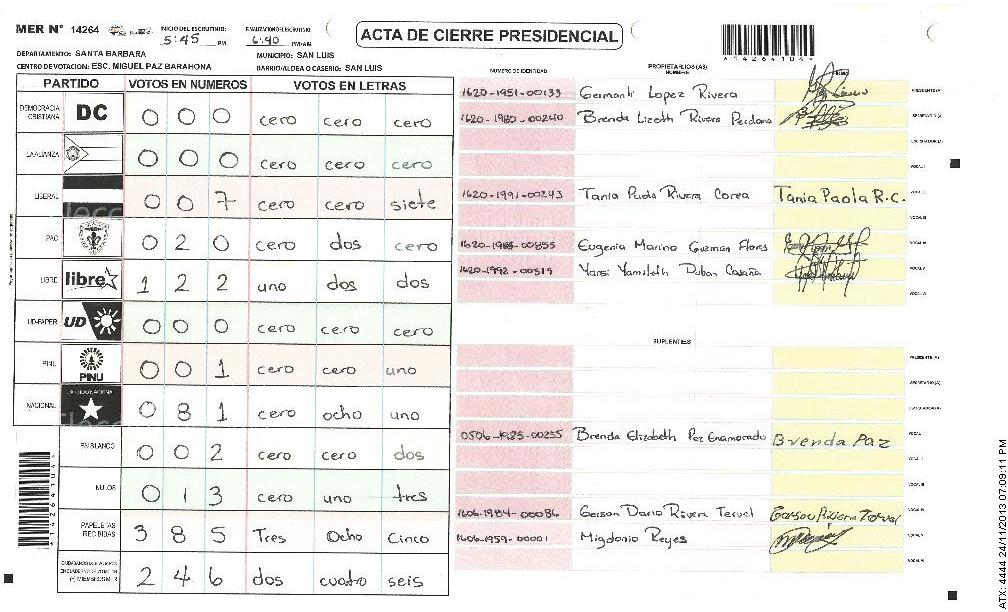 MER N° 14264 INICIO DEL ESCRUTINIO: 5:45 PM FINALIZACION DEL ESCRUTINIO 6:40 PM/AM
ACTA DE CIERRE PRESIDENCIAL
*14264104*
DEPARTAMENTO: SANTA BARBARA MUNICIPIO: SAN LUIS
CENTRO DE VOTACION: ESC. MIGUEL PAZ BARAHONA BARRIO/ALDEA O CASERIO: SAN LUIS
PARTIDO VOTOS EN NUMEROS VOTOS EN LETRAS
DEMOCRACIA CRISTIANA DC 0 0 0 cero cero cero
LA ALIANZA 0 0 0 cero cero cero
LIBERAL 0 0 7 cero cero siete
PAC 0 2 0 cero dos cero
LIBRE libre 1 2 2 uno dos dos
UD-FAPER UD 0 0 0 cero cero cero
PINU PINU 0 0 1 cero cero uno
NACIONAL PARTIDO NACIONAL 0 8 1 cero ocho uno
EN BLANCO 0 0 2 cero cero dos
NULOS 0 1 3 cero uno tres
PAPELETAS RECIBIDAS 3 8 5 Tres Ocho Cinco
2 4 6 dos cuatro seis
NUMERO DE IDENTIDAD PROPIETARIOS (AS) NOMBRE FIRMA
1620-1951-00133 Lopez Rivera PRESIDENTE (A)
1620-1980-00240 Brenda Lizeth Rivera Perdomo SECRETARIO (A)
ESCRUTADOR (A)
VOCAL I
1620-1991-00243 Tania Paola Rivera Correa Tania Paola R.C. VOCAL II
VOCAL III
Eugenia Marina Guzman Flores VOCAL IV
1620-1992-00519 Yamileth VOCAL V
VOCAL VI
SUPLENTES
PRESIDENTE (A)
SECRETARIO (A)
ESCRUTADOR (A)
0506-1985-00255 Brenda Elizabeth Paz Enamorado Brenda Paz VOCAL I
VOCAL II
VOCAL III
1606-1984-00086 Gerson Dario Rivera Teruel Gerson Rivera Teruel VOCAL IV
1606-1959-00001 Migdonio Reyes VOCAL V
VOCAL VI
*14264104*
ATX: 4444 24/11/2013 07:09:11 PM